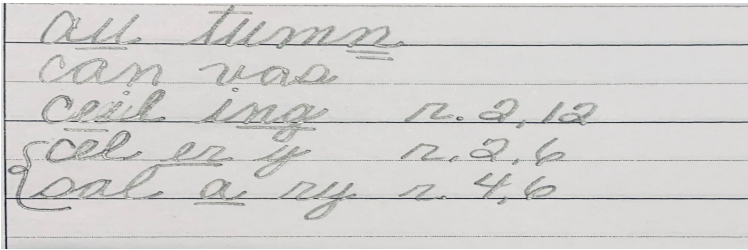 au tumn
can vas
ceil ing r. 2, 12
cel er y r. 2, 6
sal a ry r. 4, 6